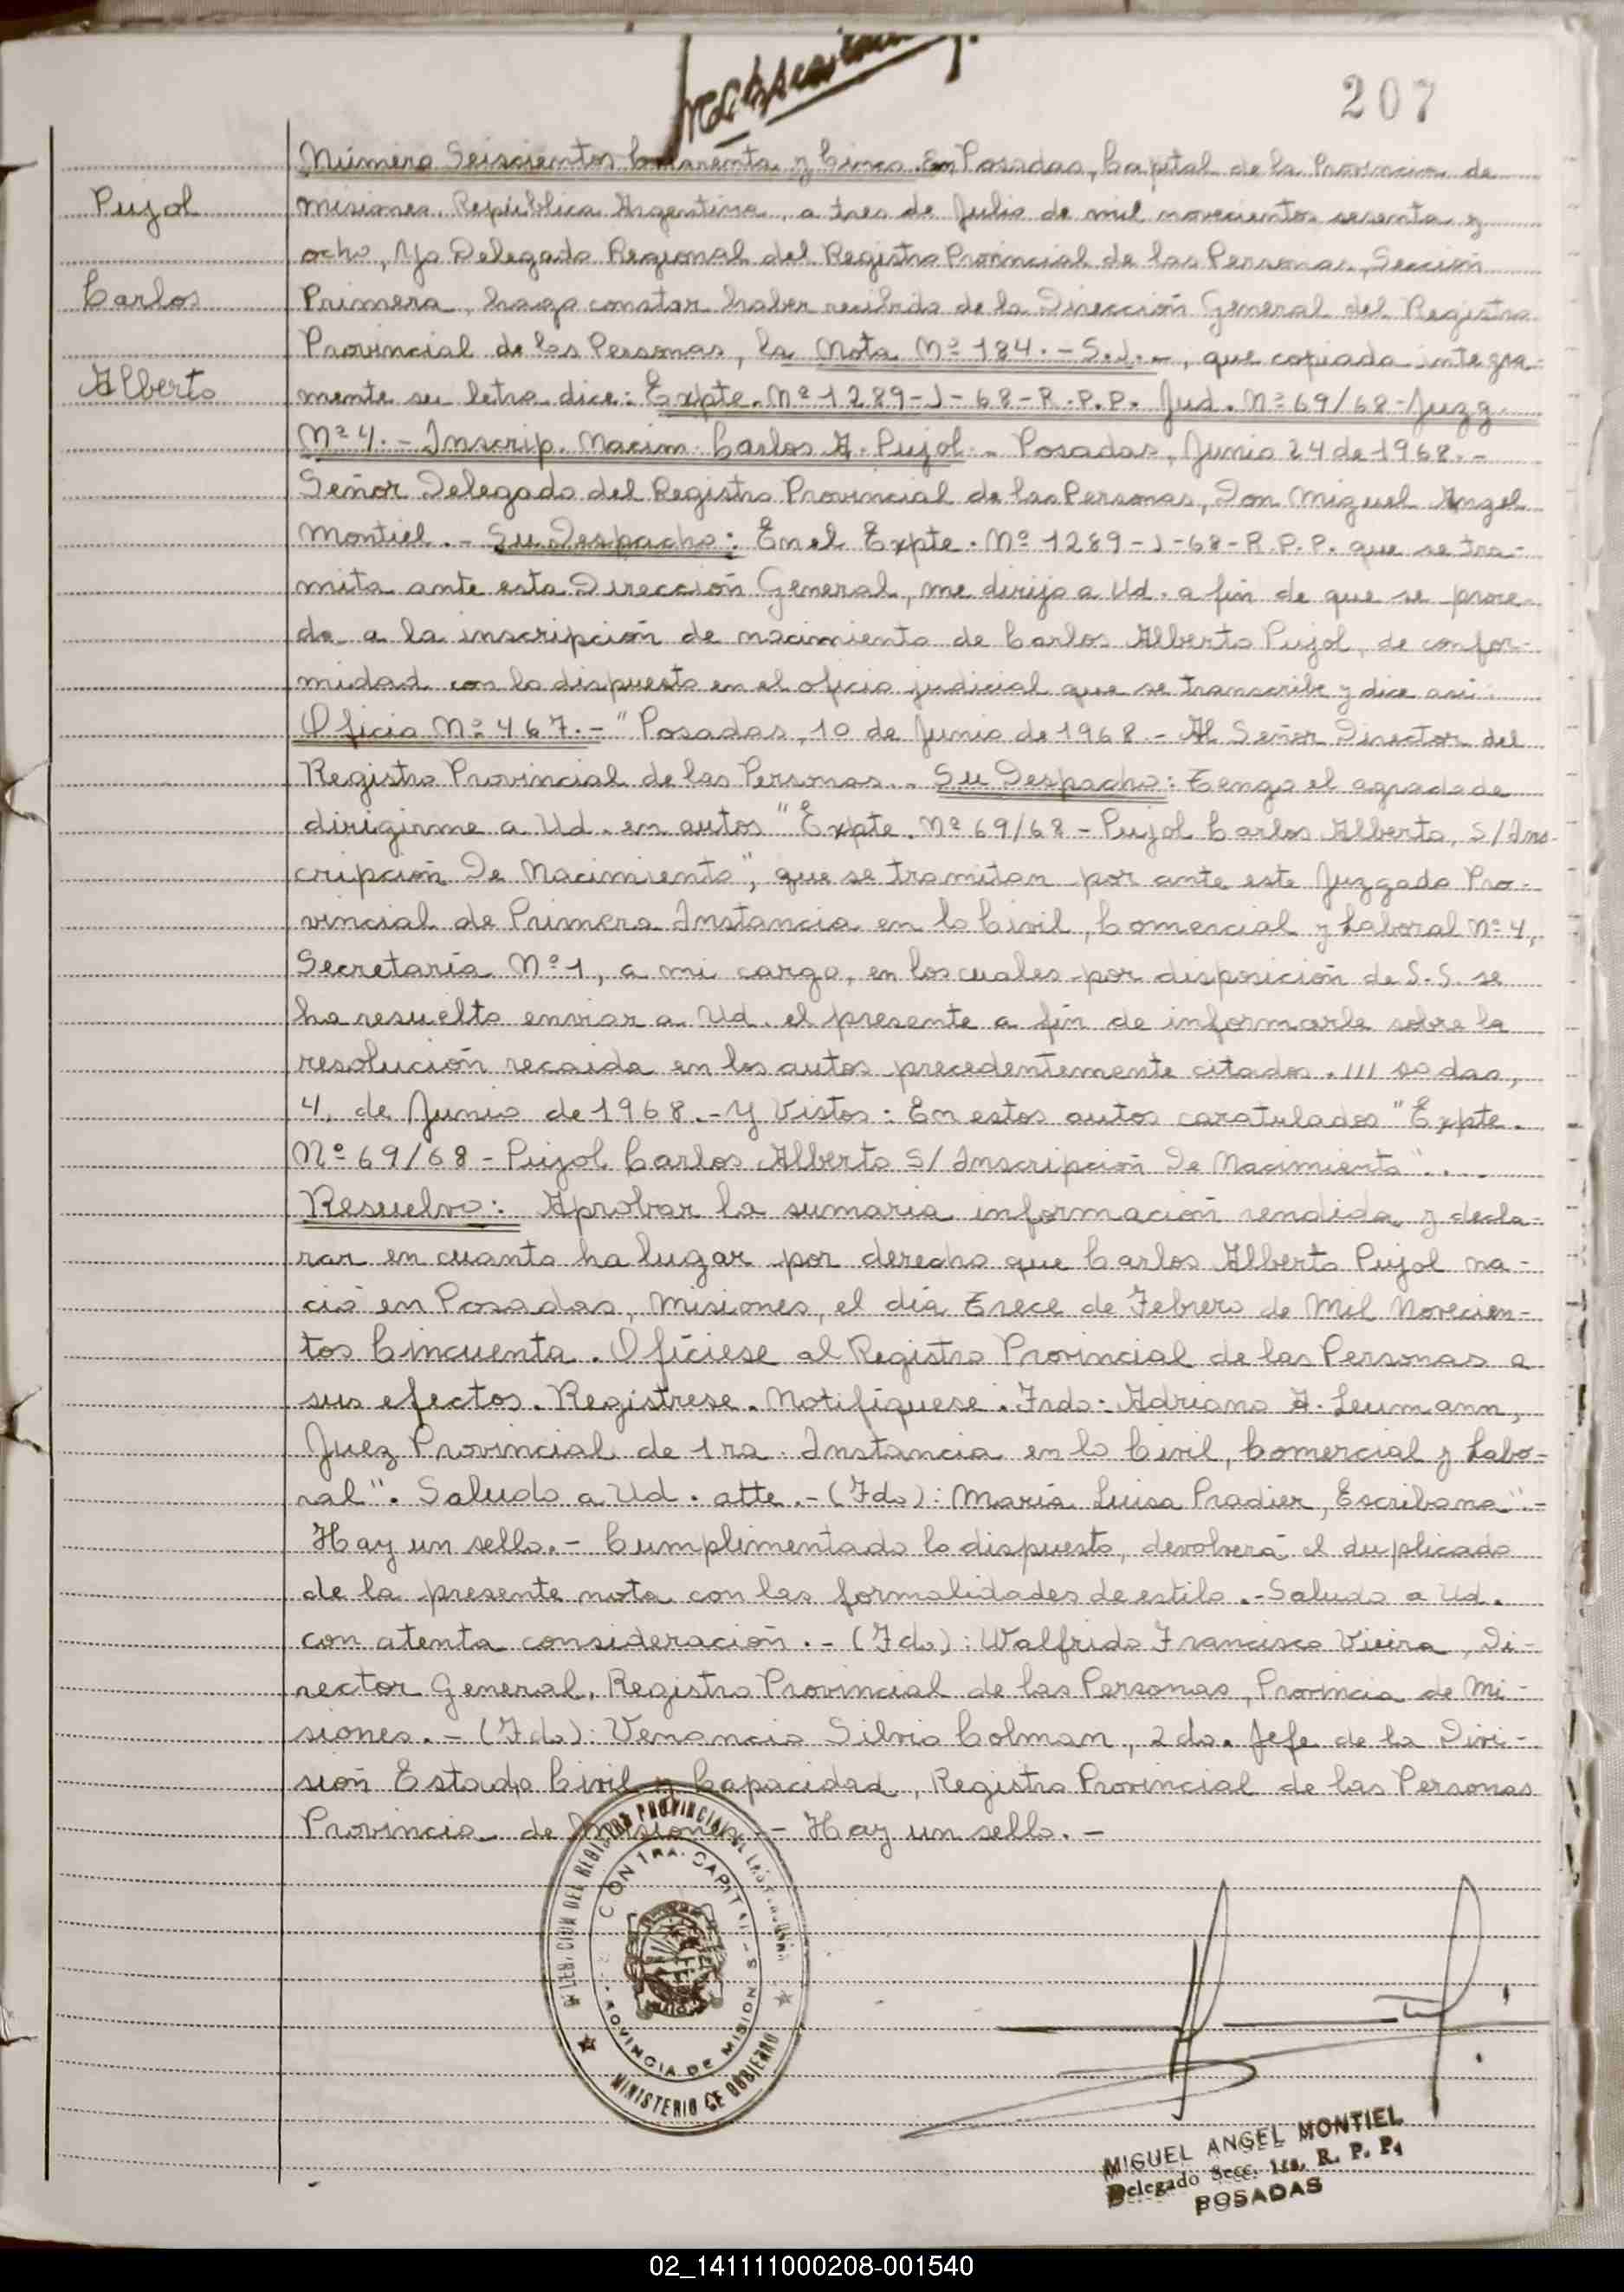 207
Pujol
Carlos
Alberto
Número Seiscientos Cuarenta y Cinco. En Posadas, Capital de la Provincia de
Misiones, República Argentina, a tres de Julio de mil novecientos sesenta y
ocho, Yo Delegado Regional del Registro Provincial de las Personas, Sección
Primera, hago constar haber recibido de la Dirección General del Registro
Provincial de las Personas, la Nota Nº 184.- S.J.-, que copiada íntegra-
mente su letra dice: Expte. Nº 1289-J-68-R.P.P. Jud. Nº 69/68-Juzg.
Nº 4.- Inscrip. Nacim. Carlos A. Pujol.- Posadas, Junio 24 de 1968.-
Señor Delegado del Registro Provincial de las Personas, Don Miguel Angel
Montiel.- Su Despacho: En el Expte. Nº 1289-J-68-R.P.P. que se tra-
mita ante esta Dirección General, me dirijo a Ud. a fin de que se proce-
da a la inscripción de nacimiento de Carlos Alberto Pujol, de confor-
midad con lo dispuesto en el oficio judicial que se transcribe y dice así:
Oficio Nº 467.- "Posadas, 10 de Junio de 1968.- Al Señor Director del
Registro Provincial de las Personas.- Su Despacho: Tengo el agrado de
dirigirme a Ud. en autos "Expte. Nº 69/68 - Pujol Carlos Alberto, S/Ins-
cripción De Nacimiento", que se tramitan por ante este Juzgado Pro-
vincial de Primera Instancia en lo Civil, Comercial y Laboral Nº 4,
Secretaría Nº 1, a mi cargo, en los cuales por disposición de S.S. se
ha resuelto enviar a Ud. el presente a fin de informarle sobre la
resolución recaída en los autos precedentemente citados. /// sadas,
4, de Junio de 1968.- Y Vistos: En estos autos caratulados "Expte.
Nº 69/68 - Pujol Carlos Alberto S/ Inscripción De Nacimiento"...
Resuelvo: Aprobar la sumaria información rendida y decla-
rar en cuanto ha lugar por derecho que Carlos Alberto Pujol na-
ció en Posadas, Misiones, el día Trece de Febrero de Mil Novecien-
tos Cincuenta. Ofíciese al Registro Provincial de las Personas a
sus efectos. Regístrese. Notifíquese. Frdo: Adriano A. Leumann,
Juez Provincial de 1ra. Instancia en lo Civil, Comercial y Labo-
ral". Saludo a Ud. atte.- (Fdo): María Luisa Pradier, Escribana".-
Hay un sello.- Cumplimentado lo dispuesto, devolverá el duplicado
de la presente nota con las formalidades de estilo.- Saludo a Ud.
con atenta consideración.- (Fdo): Walfrido Francisco Vieira, Di-
rector General, Registro Provincial de las Personas, Provincia de Mi-
siones.- (Fdo): Venancio Silvio Colman, 2do. Jefe de la Divi-
sión Estado Civil y Capacidad, Registro Provincial de las Personas
Provincia de Misiones.- Hay un sello.-
MINISTERIO DE GOBIERNO
PROVINCIA DE MISIONES
MIGUEL ANGEL MONTIEL
Delegado Secc. 1ra. R. P. P.
POSADAS
02_141111000208-001540